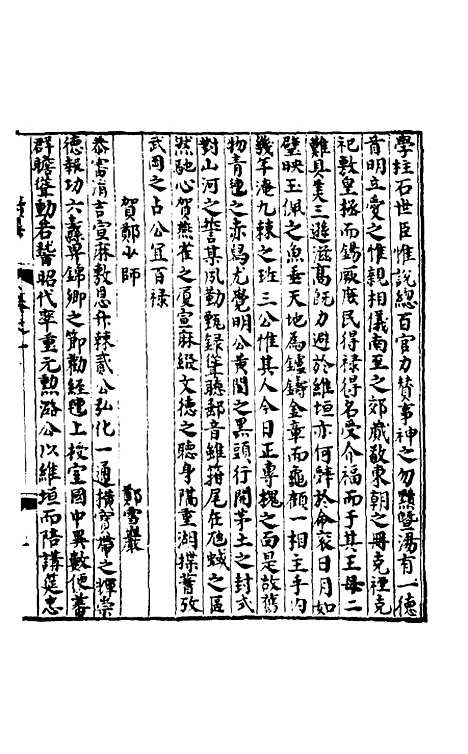 學柱石世臣惟說總百官力贊事神之勿黷暨湯有一德
肯明立愛之惟親相儀南至之郊葴敬東朝之冊克禋克
祀敷皇極而錫厥庶民得祿得名受介福而于其王母二
難具美三遜滋高既力避於維垣亦何辭於命衮日月如
壁映玉佩之魚垂天地為鑪鑄金章而龜顧一相主乎内
幾年淹九棘之班三公惟其人今日正專槐之面是故舊
物青氊之赤舄尤覺明公黃閣之黑頭行開茅土之封式
對山河之誓某夙勤甄錄聳聽郵音雖箝尾在尫蜮之區
然馳心賀燕雀之厦宣麻縱文德之聽身隔重湖揲蓍攷
武岡之占公冝百祿
賀鄭少師
鄭雪巖
恭審渙言宣麻敷恩升棘貳公弘化一通橫寶帶之輝崇
德報功六纛畀錦卿之節勸經氊上授室國中異數便蕃
群瞻聳動若稽昭代率重元勲潞公以維垣而陪講筵忠